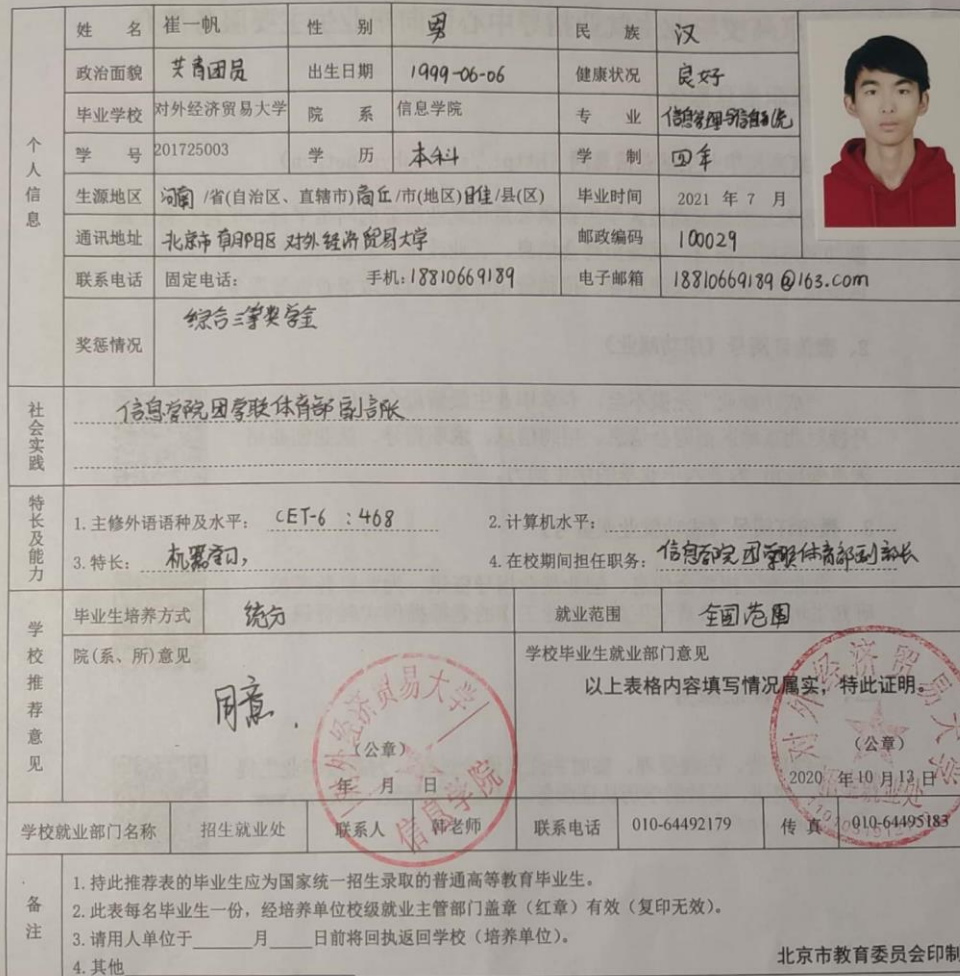 姓 名 崔一帆 性 别 男 民 族 汉
政治面貌 共青团员 出生日期 1999-06-06 健康状况 良好
毕业学校 对外经济贸易大学 院 系 信息学院 专 业 信息管理与信息系统
学 号 201725003 学 历 本科 学 制 四年
生源地区 河南/省(自治区、直辖市)商丘/市(地区)睢/县(区) 毕业时间 2021 年 7 月
通讯地址 北京市朝阳区 对外经济贸易大学 邮政编码 100029
联系电话 固定电话: 手机:18810669189 电子邮箱 18810669189@163.com
个人信息
奖惩情况 综合三等奖学金
社会实践 信息学院团学联体育部副部长
特长及能力
1.主修外语语种及水平: CET-6 :468 2.计算机水平:
3.特长: 机器学习, 4.在校期间担任职务: 信息学院团学联体育部副部长
学校推荐意见
毕业生培养方式 统分 就业范围 全国范围
院(系、所)意见 学校毕业生就业部门意见
同意. 以上表格内容填写情况属实,特此证明。
(公章) (公章)
年 月 日 2020 年 10 月 13 日
对外经济贸易大学
信息学院
对外经济贸易大学
招生就业处
学校就业部门名称 招生就业处 联系人 韩老师 联系电话 010-64492179 传 真 010-64495183
备注
1.持此推荐表的毕业生应为国家统一招生录取的普通高等教育毕业生。
2.此表每名毕业生一份,经培养单位校级就业主管部门盖章(红章)有效(复印无效)。
3.请用人单位于______月____日前将回执返回学校(培养单位)。
4.其他
北京市教育委员会印制